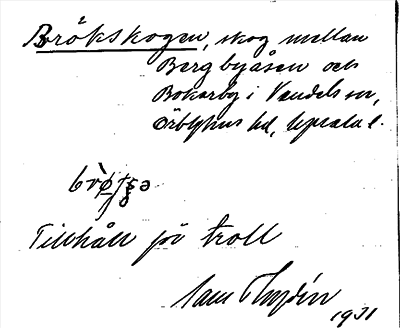 Brökskogen, skog mellan
Bergbyåsen och
Bokarby i Vendels sn,
Örbyhus hd, Upsala l.
Tillhåll för troll
1931